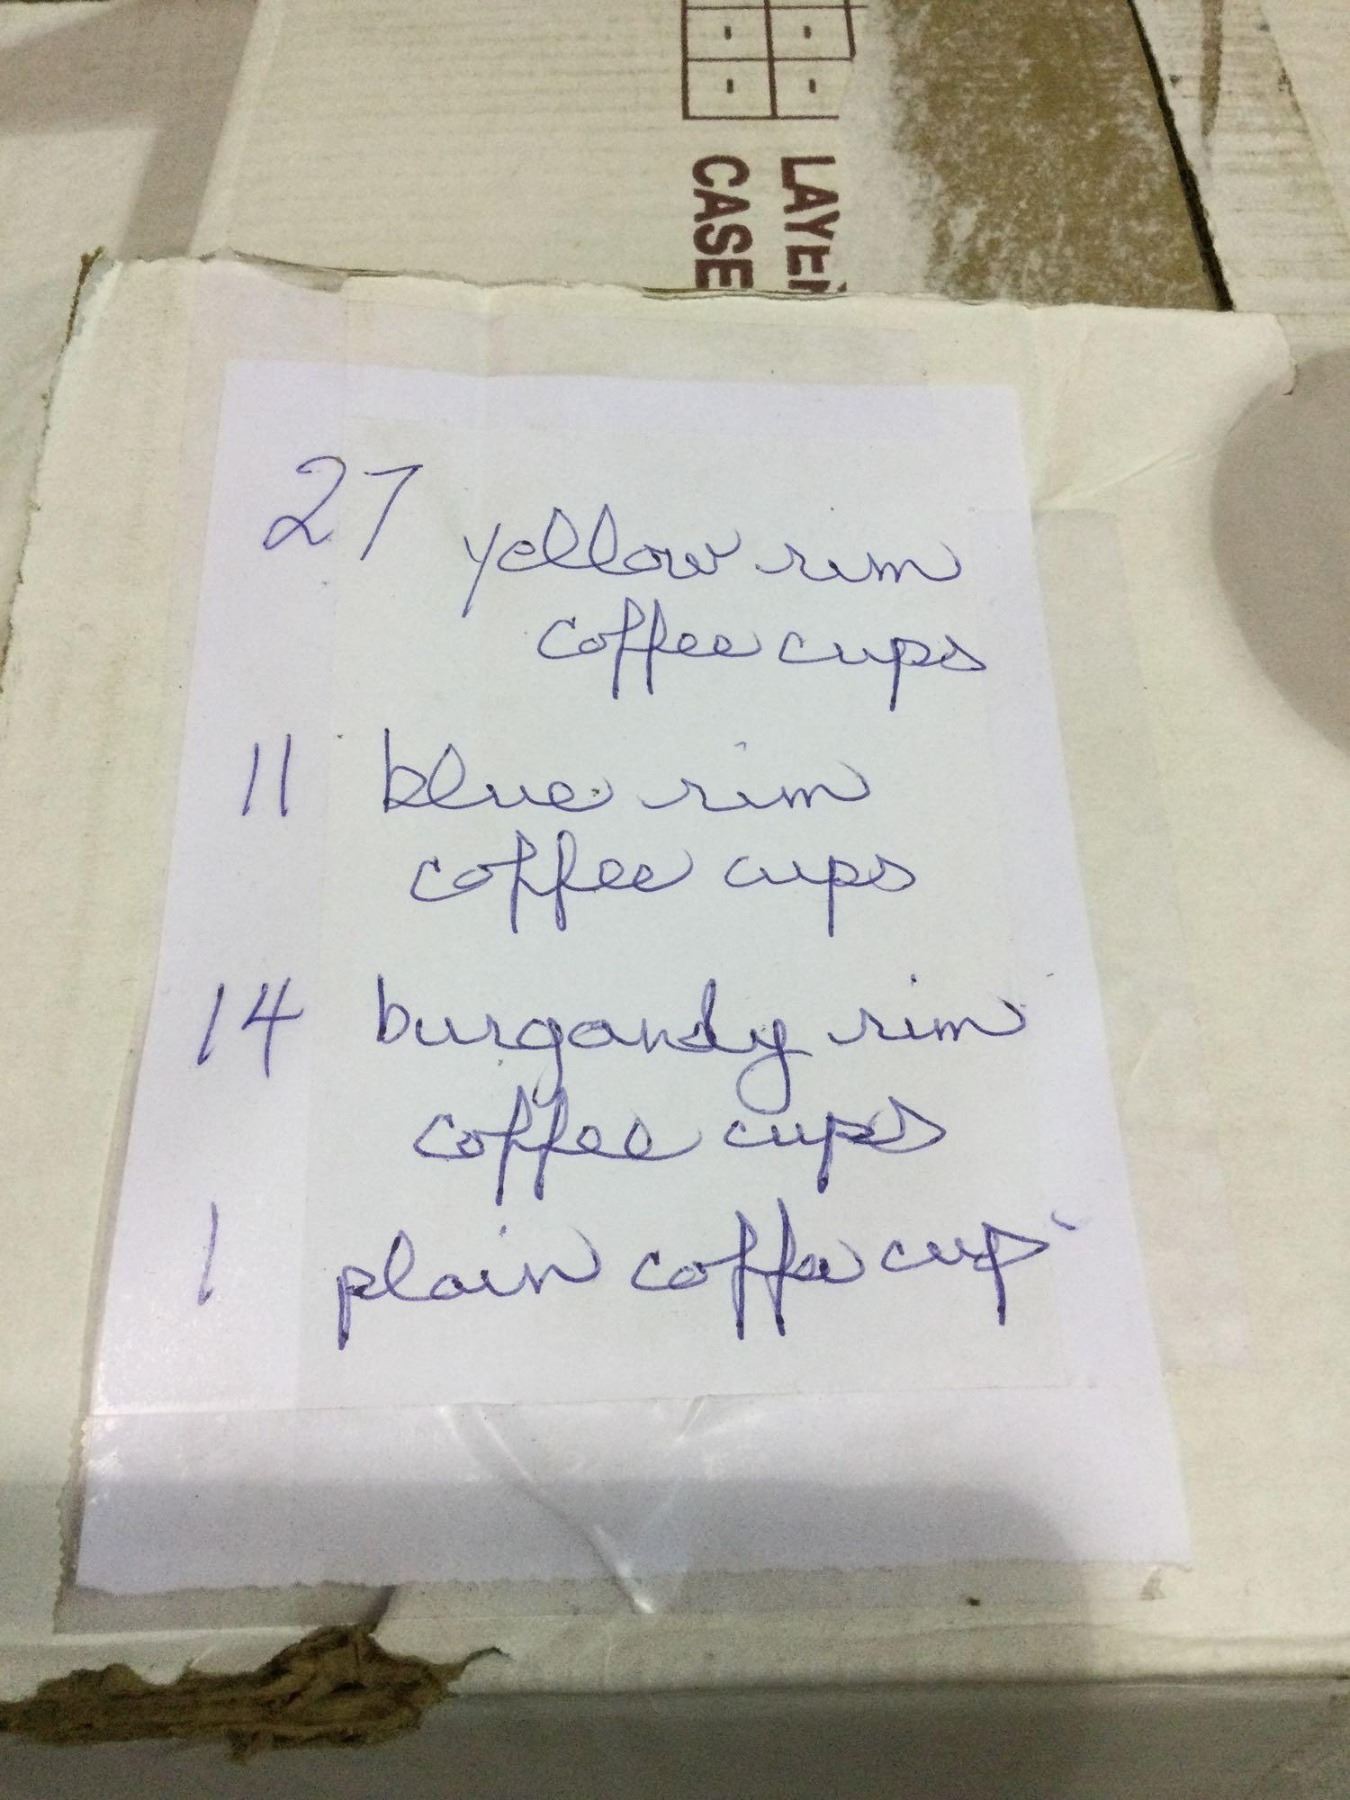 CASE
LAYER
27 yellow rim
coffee cups
11 blue rim
coffee cups
14 burgandy rim
coffee cups
1 plain coffee cup